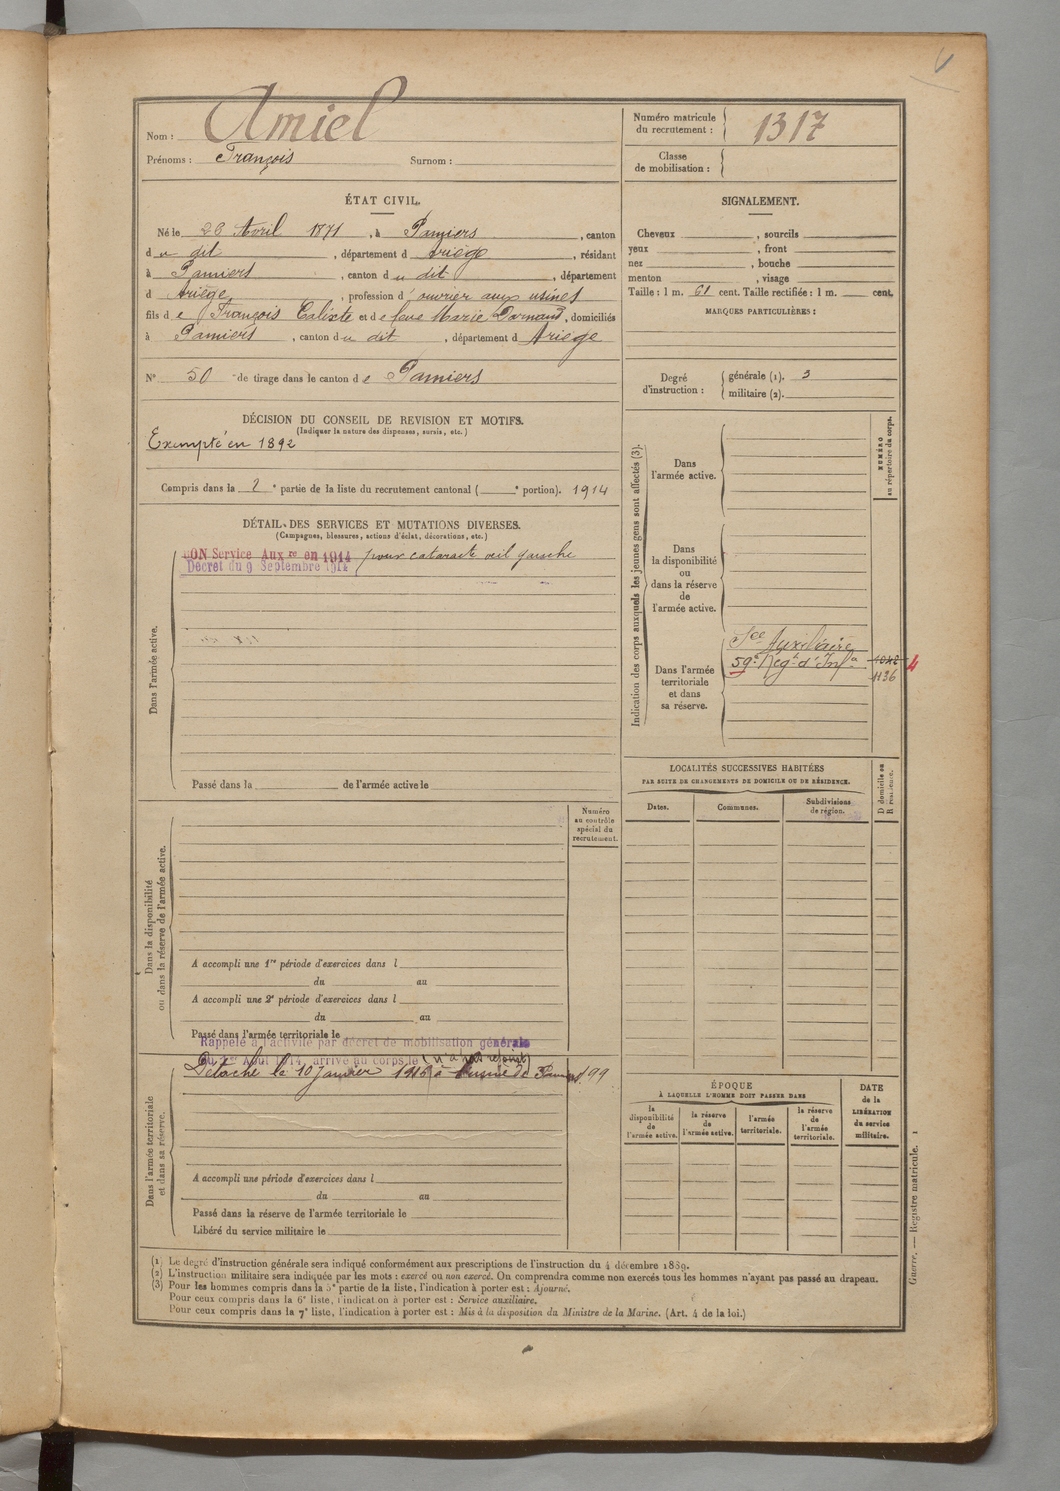 Nom : Amiel
Prénoms : François Surnom :
Numéro matricule
du recrutement : 1317
Classe
de mobilisation :
ÉTAT CIVIL.
Né le 28 Avril 1871, à Pamiers, canton
du dit, département d Ariège, résidant
à Pamiers, canton du dit, département
d Ariège, profession d'ouvrier aux usines
fils de François Calixte et de feue Marie Darnaud, domiciliés
à Pamiers, canton du dit, département d Ariège
N° 50 de tirage dans le canton de Pamiers
SIGNALEMENT.
Cheveux , sourcils
yeux , front
nez , bouche
menton , visage
Taille : 1 m. 61 cent. Taille rectifiée : 1 m. cent.
MARQUES PARTICULIÈRES :
Degré
d'instruction :
générale (1). 3
militaire (2).
DÉCISION DU CONSEIL DE REVISION ET MOTIFS.
(Indiquer la nature des dispenses, sursis, etc.)
Exempté en 1892
Compris dans la 2e partie de la liste du recrutement cantonal ( e portion). 1914
DÉTAIL DES SERVICES ET MUTATIONS DIVERSES.
(Campagnes, blessures, actions d'éclat, décorations, etc.)
Dans l'armée active.
BON Service Auxre en 1914 pour cataracte œil gauche
Décret du 9 Septembre 1914
Passé dans la de l'armée active le
Indication des corps auxquels les jeunes gens sont affectés (3).
NUMÉRO
au répertoire du corps.
Dans
l'armée active.
Dans
la disponibilité
ou
dans la réserve
de
l'armée active.
Dans l'armée
territoriale
et dans
sa réserve.
Sce Auxiliaire
59e Régt d'Infie
1136
4
LOCALITÉS SUCCESSIVES HABITÉES
PAR SUITE DE CHANGEMENTS DE DOMICILE OU DE RÉSIDENCE.
Dates. Communes. Subdivisions
de région.
D domicile ou
R résidence.
Dans la disponibilité
ou dans la réserve de l'armée active.
Numéro
au contrôle
spécial du
recrutement.
A accompli une 1re période d'exercices dans l
du au
A accompli une 2e période d'exercices dans l
du au
Passé dans l'armée territoriale le
Rappelé à l'activité par décret de mobilisation générale
du 1er Août 1914, arrivé au corps le (n'a pas rejoint)
Détaché le 10 Janvier 1916 à l'usine de Pamiers 99
Dans l'armée territoriale
et dans sa réserve.
A accompli une période d'exercices dans l
du au
Passé dans la réserve de l'armée territoriale le
Libéré du service militaire le
ÉPOQUE
À LAQUELLE L'HOMME DOIT PASSER DANS
la
disponibilité
de
l'armée active.
la réserve
de
l'armée active.
l'armée
territoriale.
la réserve
de
l'armée
territoriale.
DATE
de la
LIBÉRATION
du service
militaire.
(1) Le degré d'instruction générale sera indiqué conformément aux prescriptions de l'instruction du 4 décembre 1889.
(2) L'instruction militaire sera indiquée par les mots : exercé ou non exercé. On comprendra comme non exercés tous les hommes n'ayant pas passé au drapeau.
(3) Pour les hommes compris dans la 5e partie de la liste, l'indication à porter est : Ajourné.
Pour ceux compris dans la 6e liste, l'indication à porter est : Service auxiliaire.
Pour ceux compris dans la 7e liste, l'indication à porter est : Mis à la disposition du Ministre de la Marine. (Art. 4 de la loi.)
Guerre. — Registre matricule. 1